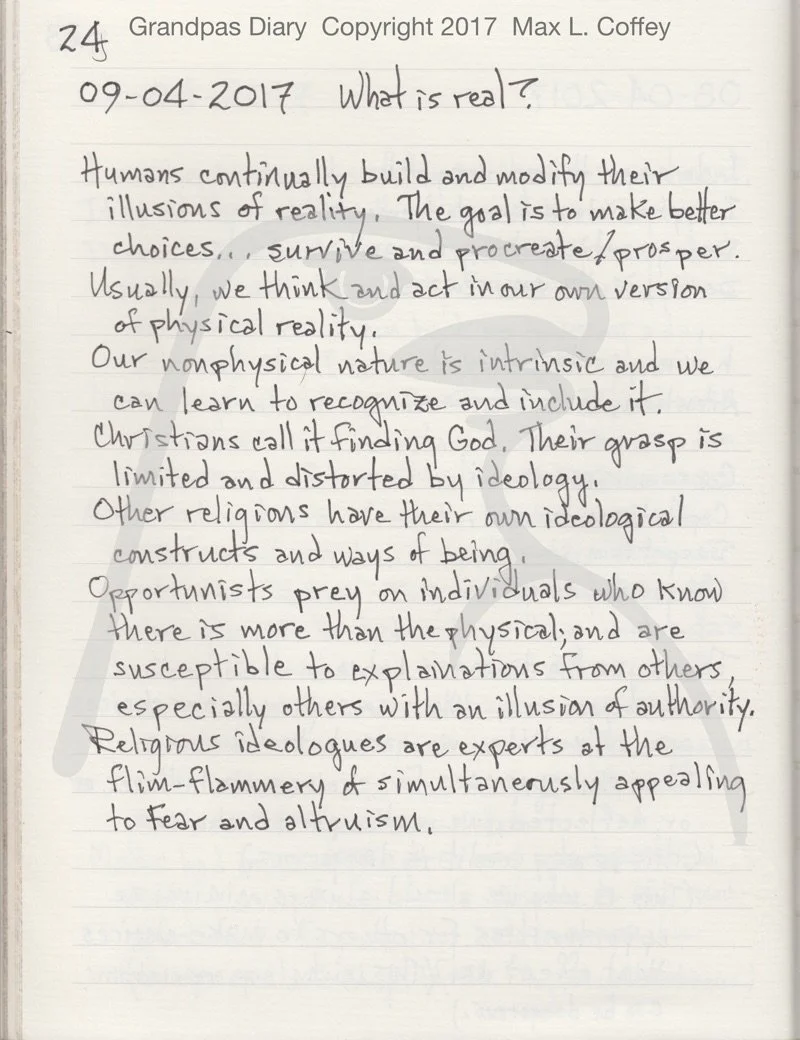 24 Grandpas Diary Copyright 2017 Max L. Coffey
09-04-2017 What is real?
Humans continually build and modify their
illusions of reality. The goal is to make better
choices... survive and procreate/prosper.
Usually, we think and act in our own version
of physical reality.
Our nonphysical nature is intrinsic and we
can learn to recognize and include it.
Christians call it finding God. Their grasp is
limited and distorted by ideology.
Other religions have their own ideological
constructs and ways of being.
Opportunists prey on individuals who know
there is more than the physical; and are
susceptible to explainations from others,
especially others with an illusion of authority.
Religious ideologues are experts at the
flim-flammery of simultaneously appealing
to fear and altruism.